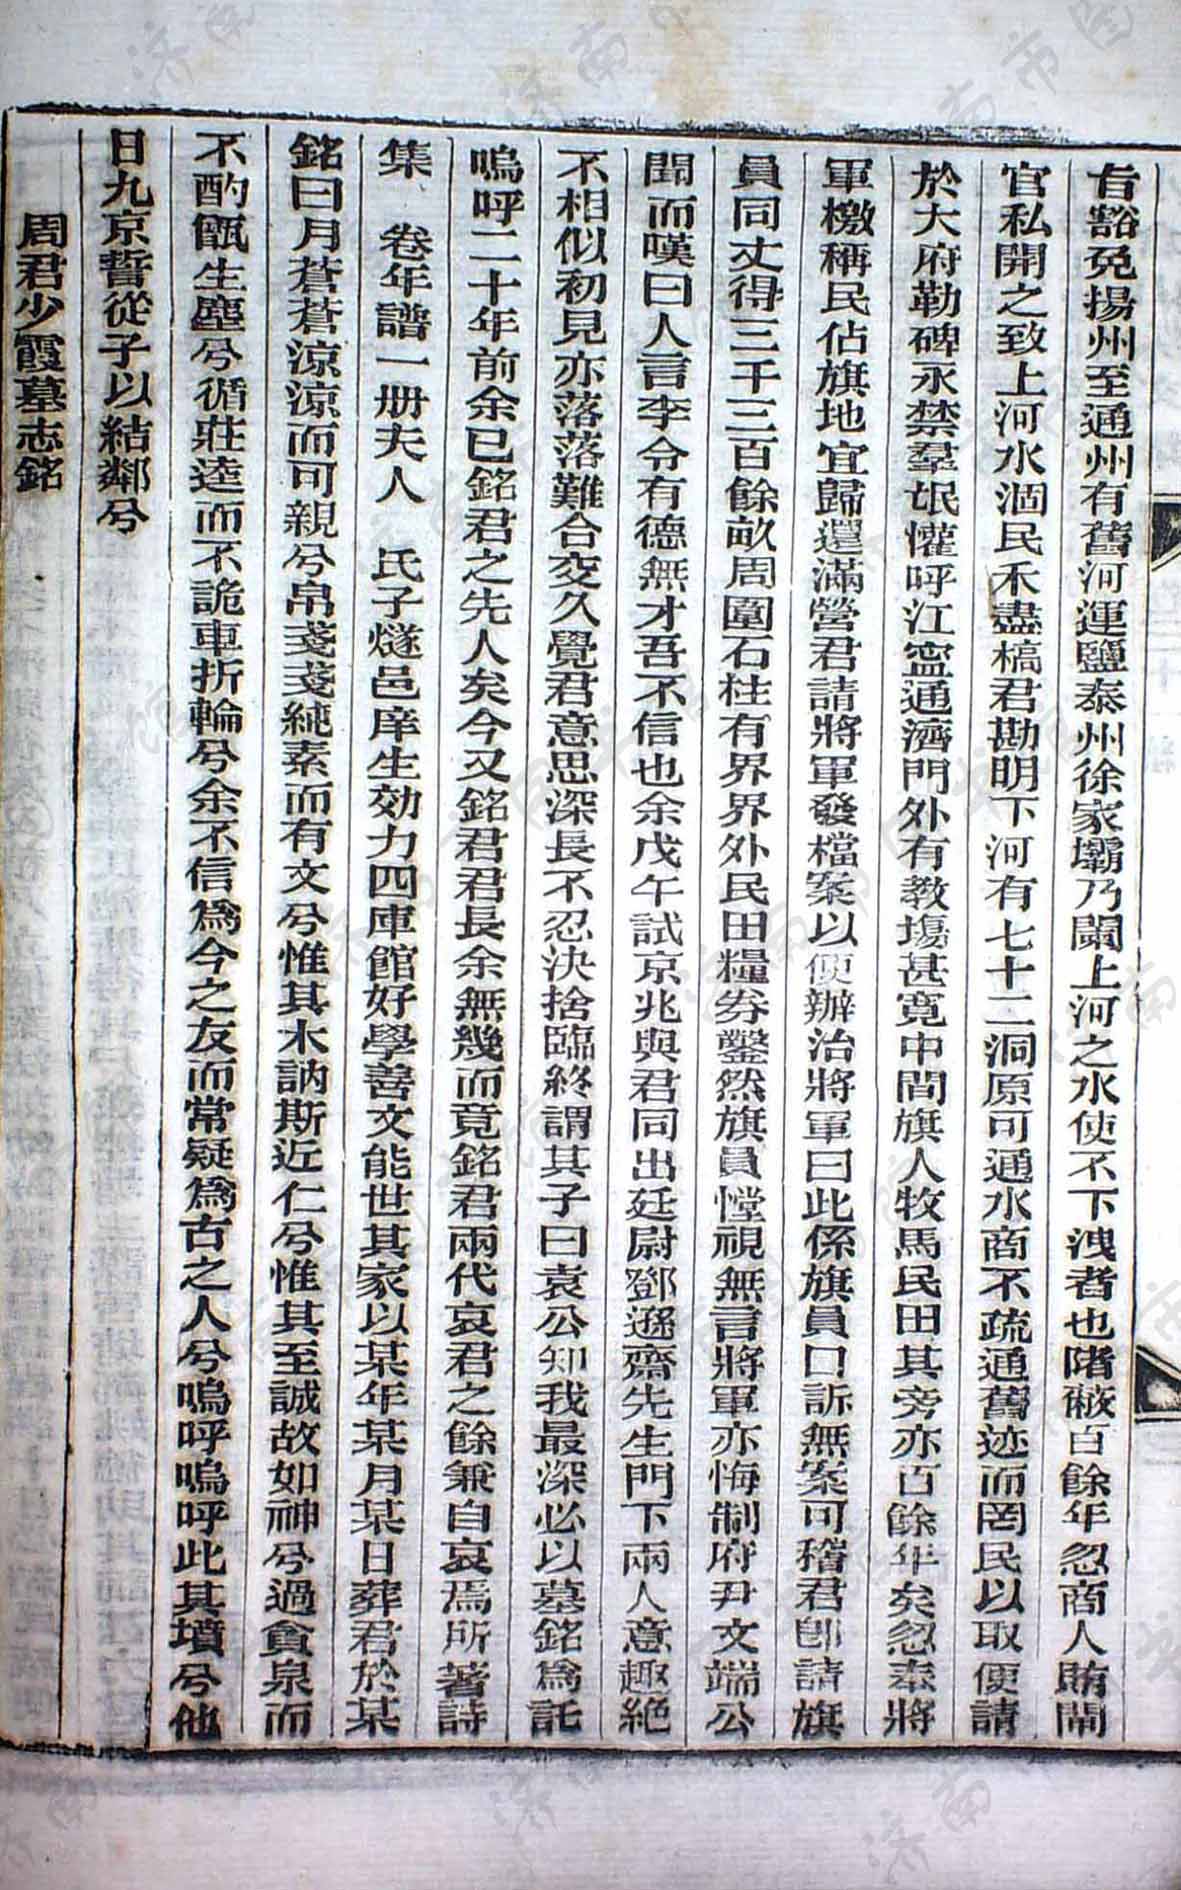 旨豁免揚州至通州有舊河運鹽泰州徐家壩乃闌上河之水使不下洩者也階敝百餘年忽商人賄閘
官私開之致上河水涸民禾盡槁君勘明下河有七十二洞原可通水商不疏通舊迹而罔民以取便請
於大府勒碑永禁羣氓懽呼江寍通濟門外有教塲甚寬中間旗人牧馬民田其旁亦百餘年矣忽奉將
軍檄稱民佔旗地宜歸還滿營君請將軍發檔案以便辦治將軍曰此係旗員口訴無案可稽君卽請旗
員同丈得三千三百餘畝周圍石柱有界界外民田糧券鑿然旗員憆視無言將軍亦悔制府尹文端公
聞而嘆曰人言李令有德無才吾不信也余戊午試京兆與君同出廷尉鄧遜齋先生門下兩人意趣絕
不相似初見亦落落難合交久覺君意思深長不忍決捨臨終謂其子曰袁公知我最深必以墓銘爲託
嗚呼二十年前余已銘君之先人矣今又銘君君長余無幾而竟銘君兩代哀君之餘兼自哀焉所著詩
集　卷年譜一册夫人　氏子燧邑庠生効力四庫館好學善文能世其家以某年某月某日葬君於某
銘曰月蒼蒼涼涼而可親兮帛戔戔純素而有文兮惟其木訥斯近仁兮惟其至誠故如神兮過貪泉而
不酌甑生塵兮循莊逵而不詭車折輪兮余不信爲今之友而常疑爲古之人兮嗚呼嗚呼此其墳兮他
日九京誓從子以結鄰兮
周君少霞墓志銘